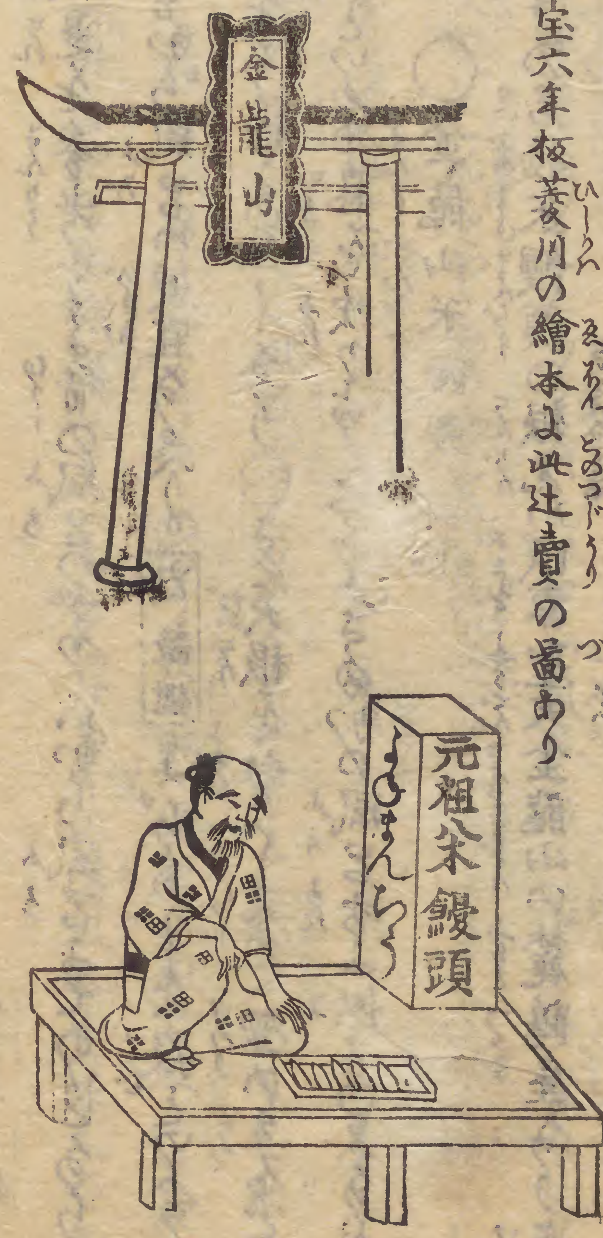 宝六年板菱川の繪本に此辻賣の啚あり
ひしかハ ゑほん このつじうり づ
金龍山
元祖米饅頭
よねまんぢう